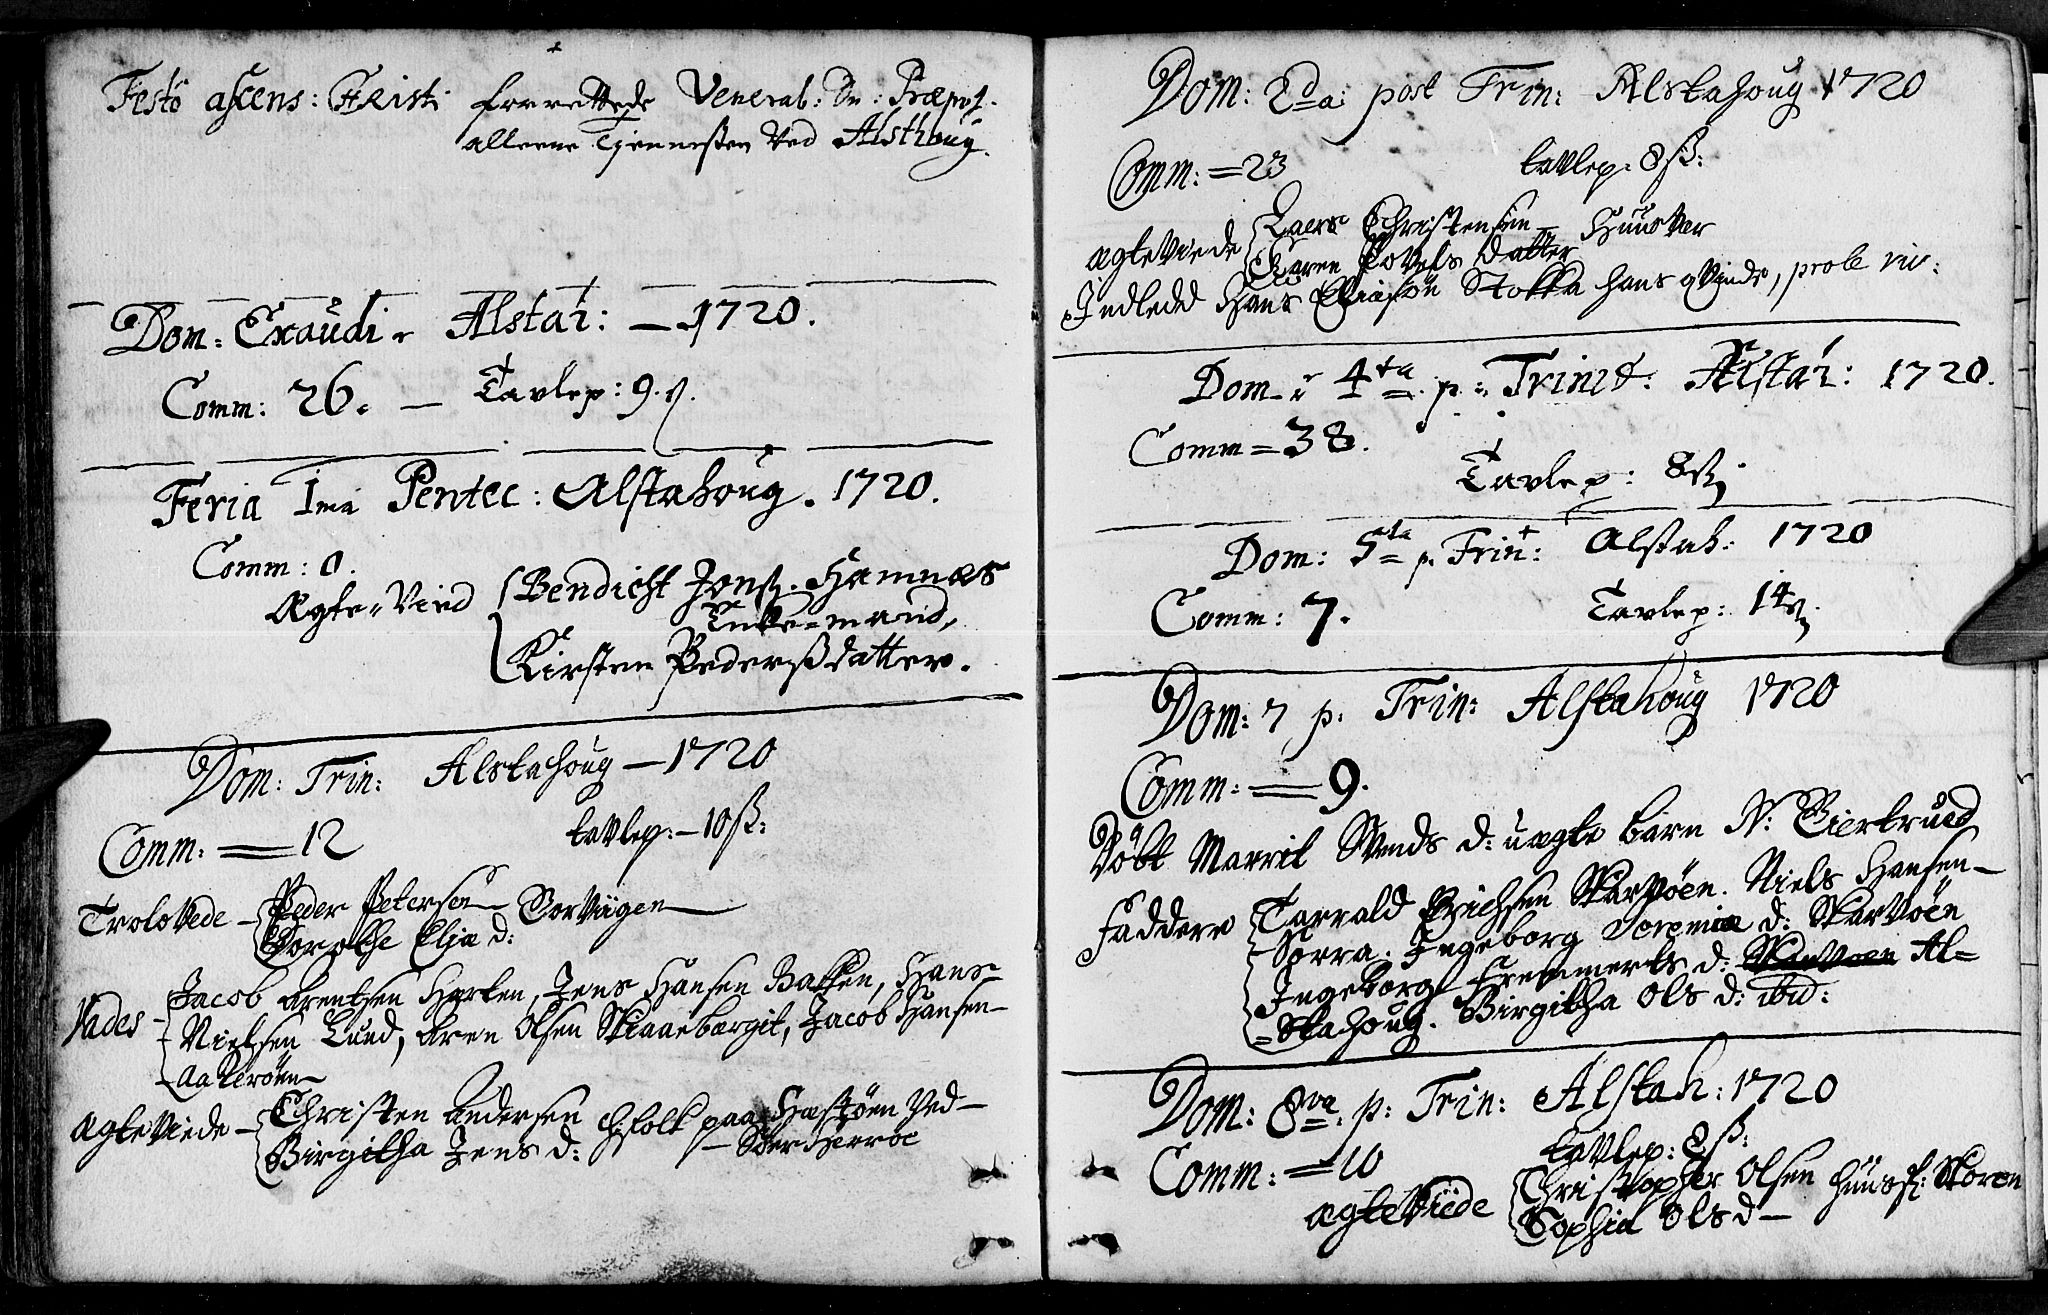 Festo ascens: Christi forrettede Veneral: Dn: Præpos.
alleene Tjennesten ved Alsthoug.
Dom: Exaudi Alstah: — 1720.
Comm: 26. — Tavlep: 9.
Feria Ima Pentec: Alstahoug. 1720.
Comm: 0.
Ægte-Vied Bendicht Jonß. Hamnæs
Encke-mand,
Kirsten Pedersdatter.
Dom: Trin: Alstahoug — 1720
Comm: = 12 tavlep: — 10 ß:
Trolovede — Peder Petersen Sorvågen
Dorothe Elja d:
Vades — Jacob Arentsen Harten, Jens Hansen Bakken, Hans
Nielsen Lund, Aren Olsen Skiaaebærgit, Jacob Hansen
Aakerøen
ægteviede — Christen Andersen Hfolk paa Hæstøen ved
Birgitha Jens d: — Sør Herrøe
Dom: 2da: post Trin: Alstahoug 1720
Comm: = 23 tavlep: 8 ß:
ægteviede Laers Christensen — Huusvær
Caren Povels datter
Indledd Hans Eliasøn Stokka hans qvinde, prole viv:
Dom 4ta p: Trinit: Alstah: 1720.
Comm = 38.
Tavlep: 8 ß
Dom: 5ta p. Trin: Alstah: 1720
Comm: 7. Tavlep: 14 ß.
Dom: 7 p. Trin: Alstahoug 1720
Comm: = 9.
Døbt Marrit Svends d: uægte barn N: Giertrued
Faddere Tarrald Erichsen Skarvøen. Niels Hansen
Sørra. Ingeborg Joremiæ d: Skarvøen
Ingeborg Fremmerts d: Skarvoen Al=
=stahoug. Birgitha Ols d: ibid:
Dom: 8va p: Trin: Alstah: 1720
Comm: = 10 tavlep: 8 ß:
ægteviede Christopher Olsen huusf: Skoren
Sophia Ols d —